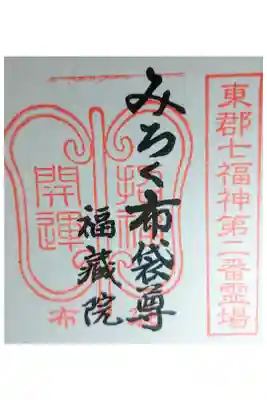 東郡七福神第二番霊場
みろく布袋尊
福藏院
開運
布